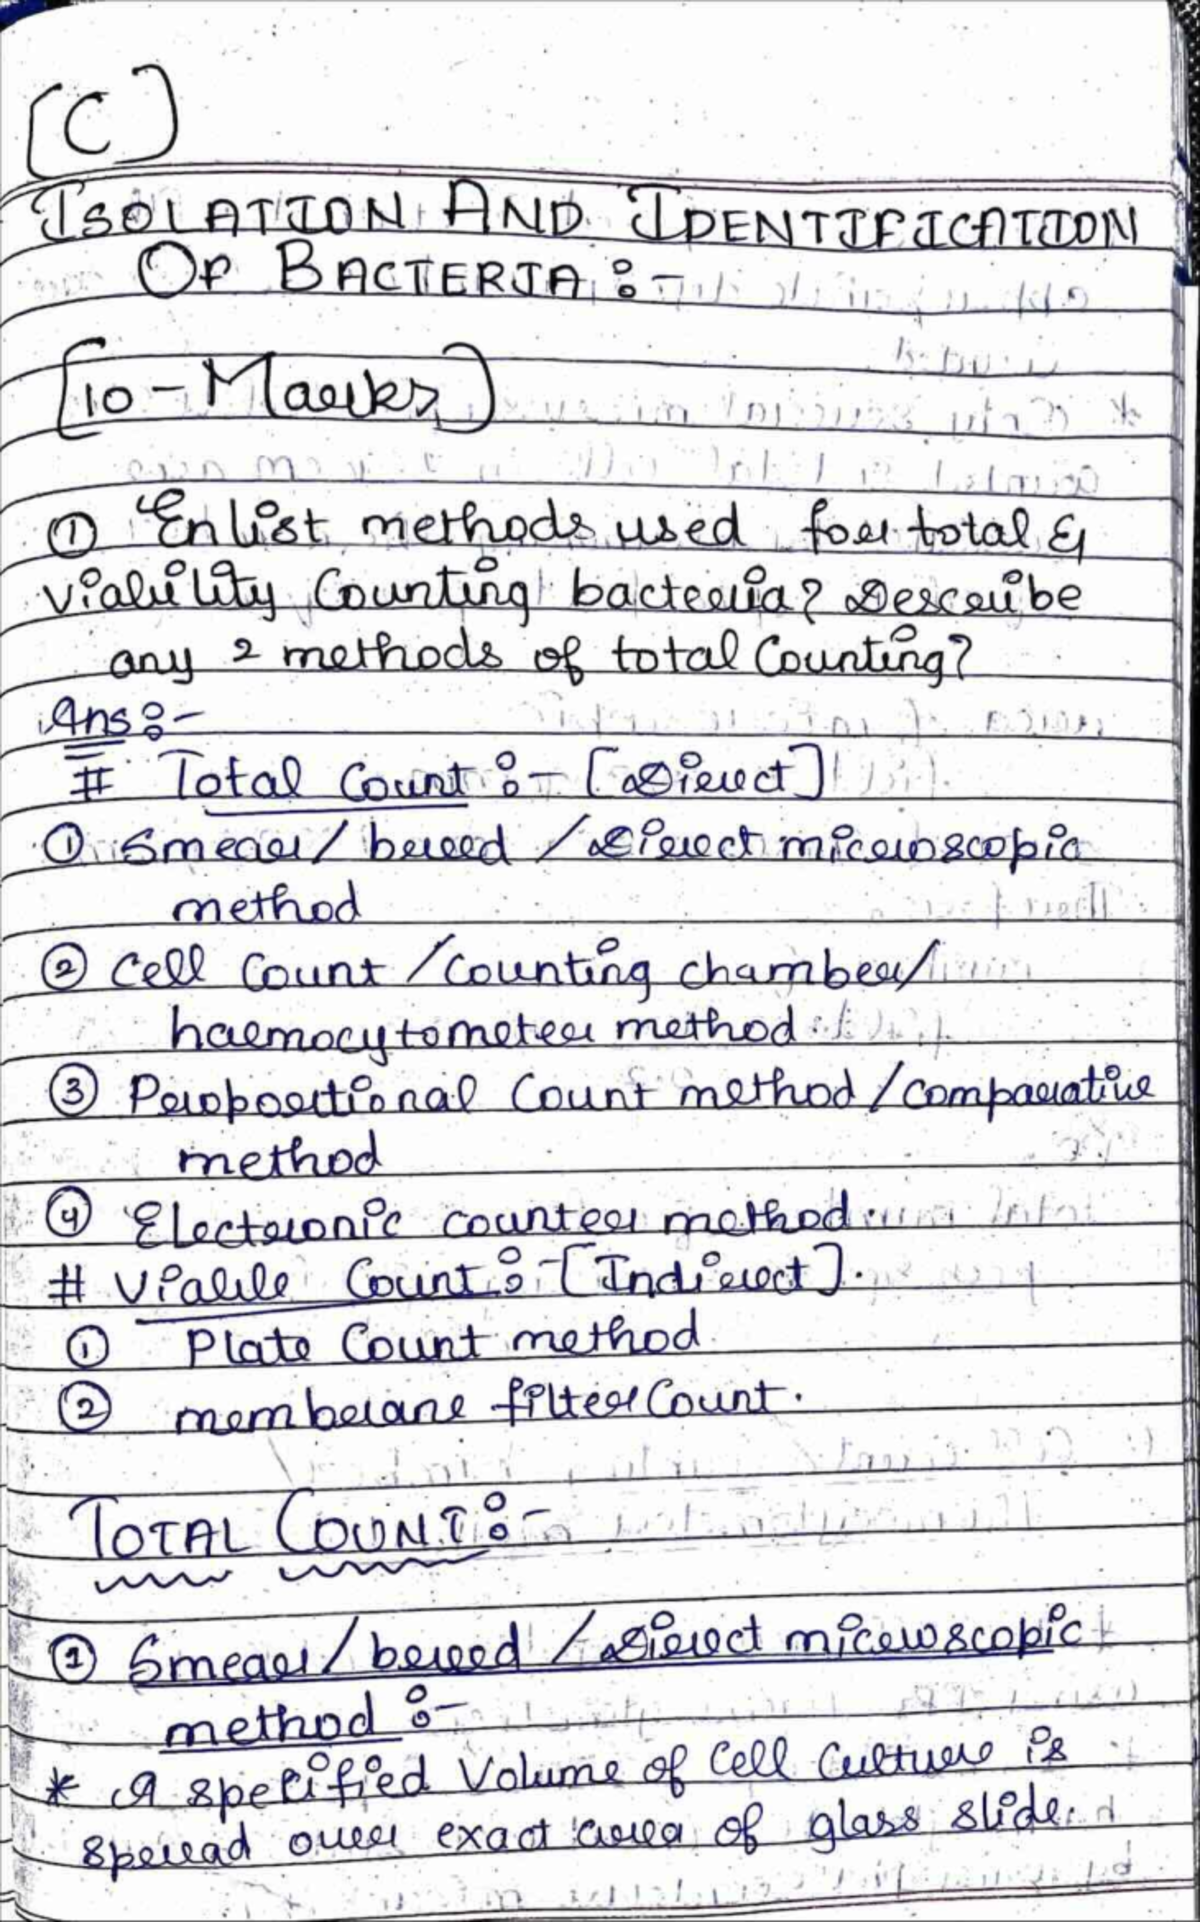 [C]
ISOLATION AND IDENTIFICATION
OF BACTERIA :-
[10-Marks]
① Enlist methods used for total &
viability Counting bacteria? Describe
any 2 methods of total Counting?
Ans :-
# Total Count :- [Direct]
① Smear / breed / Direct microscopic
method
② Cell Count / Counting chamber /
haemocytometer method
③ Proportional Count method / comparative
method
④ Electronic counter method.
# Viable Count :- [Indirect].
① Plate Count method
② membrane filter Count.
TOTAL COUNT :-
① Smear / breed / Direct microscopic
method :-
* A specified Volume of Cell Culture is
spread over exact area of glass slide.